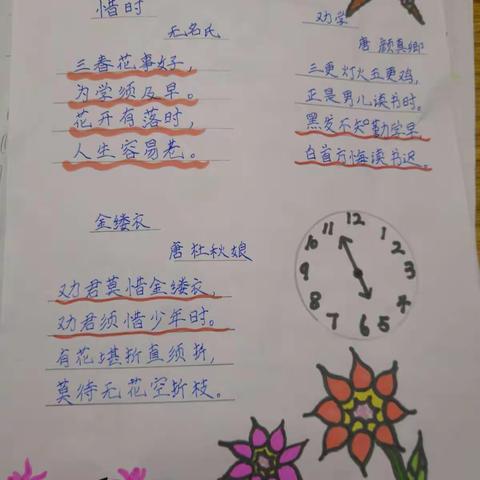 惜时
无名氏
三春花事好,
为学须及早。
花开有落时,
人生容易老。
劝学
唐 颜真卿
三更灯火五更鸡,
正是男儿读书时。
黑发不知勤学早,
白首方悔读书迟。
金缕衣
唐 杜秋娘
劝君莫惜金缕衣,
劝君须惜少年时。
有花堪折直须折,
莫待无花空折枝。
12
1
2
3
4
5
6
7
8
9
10
11